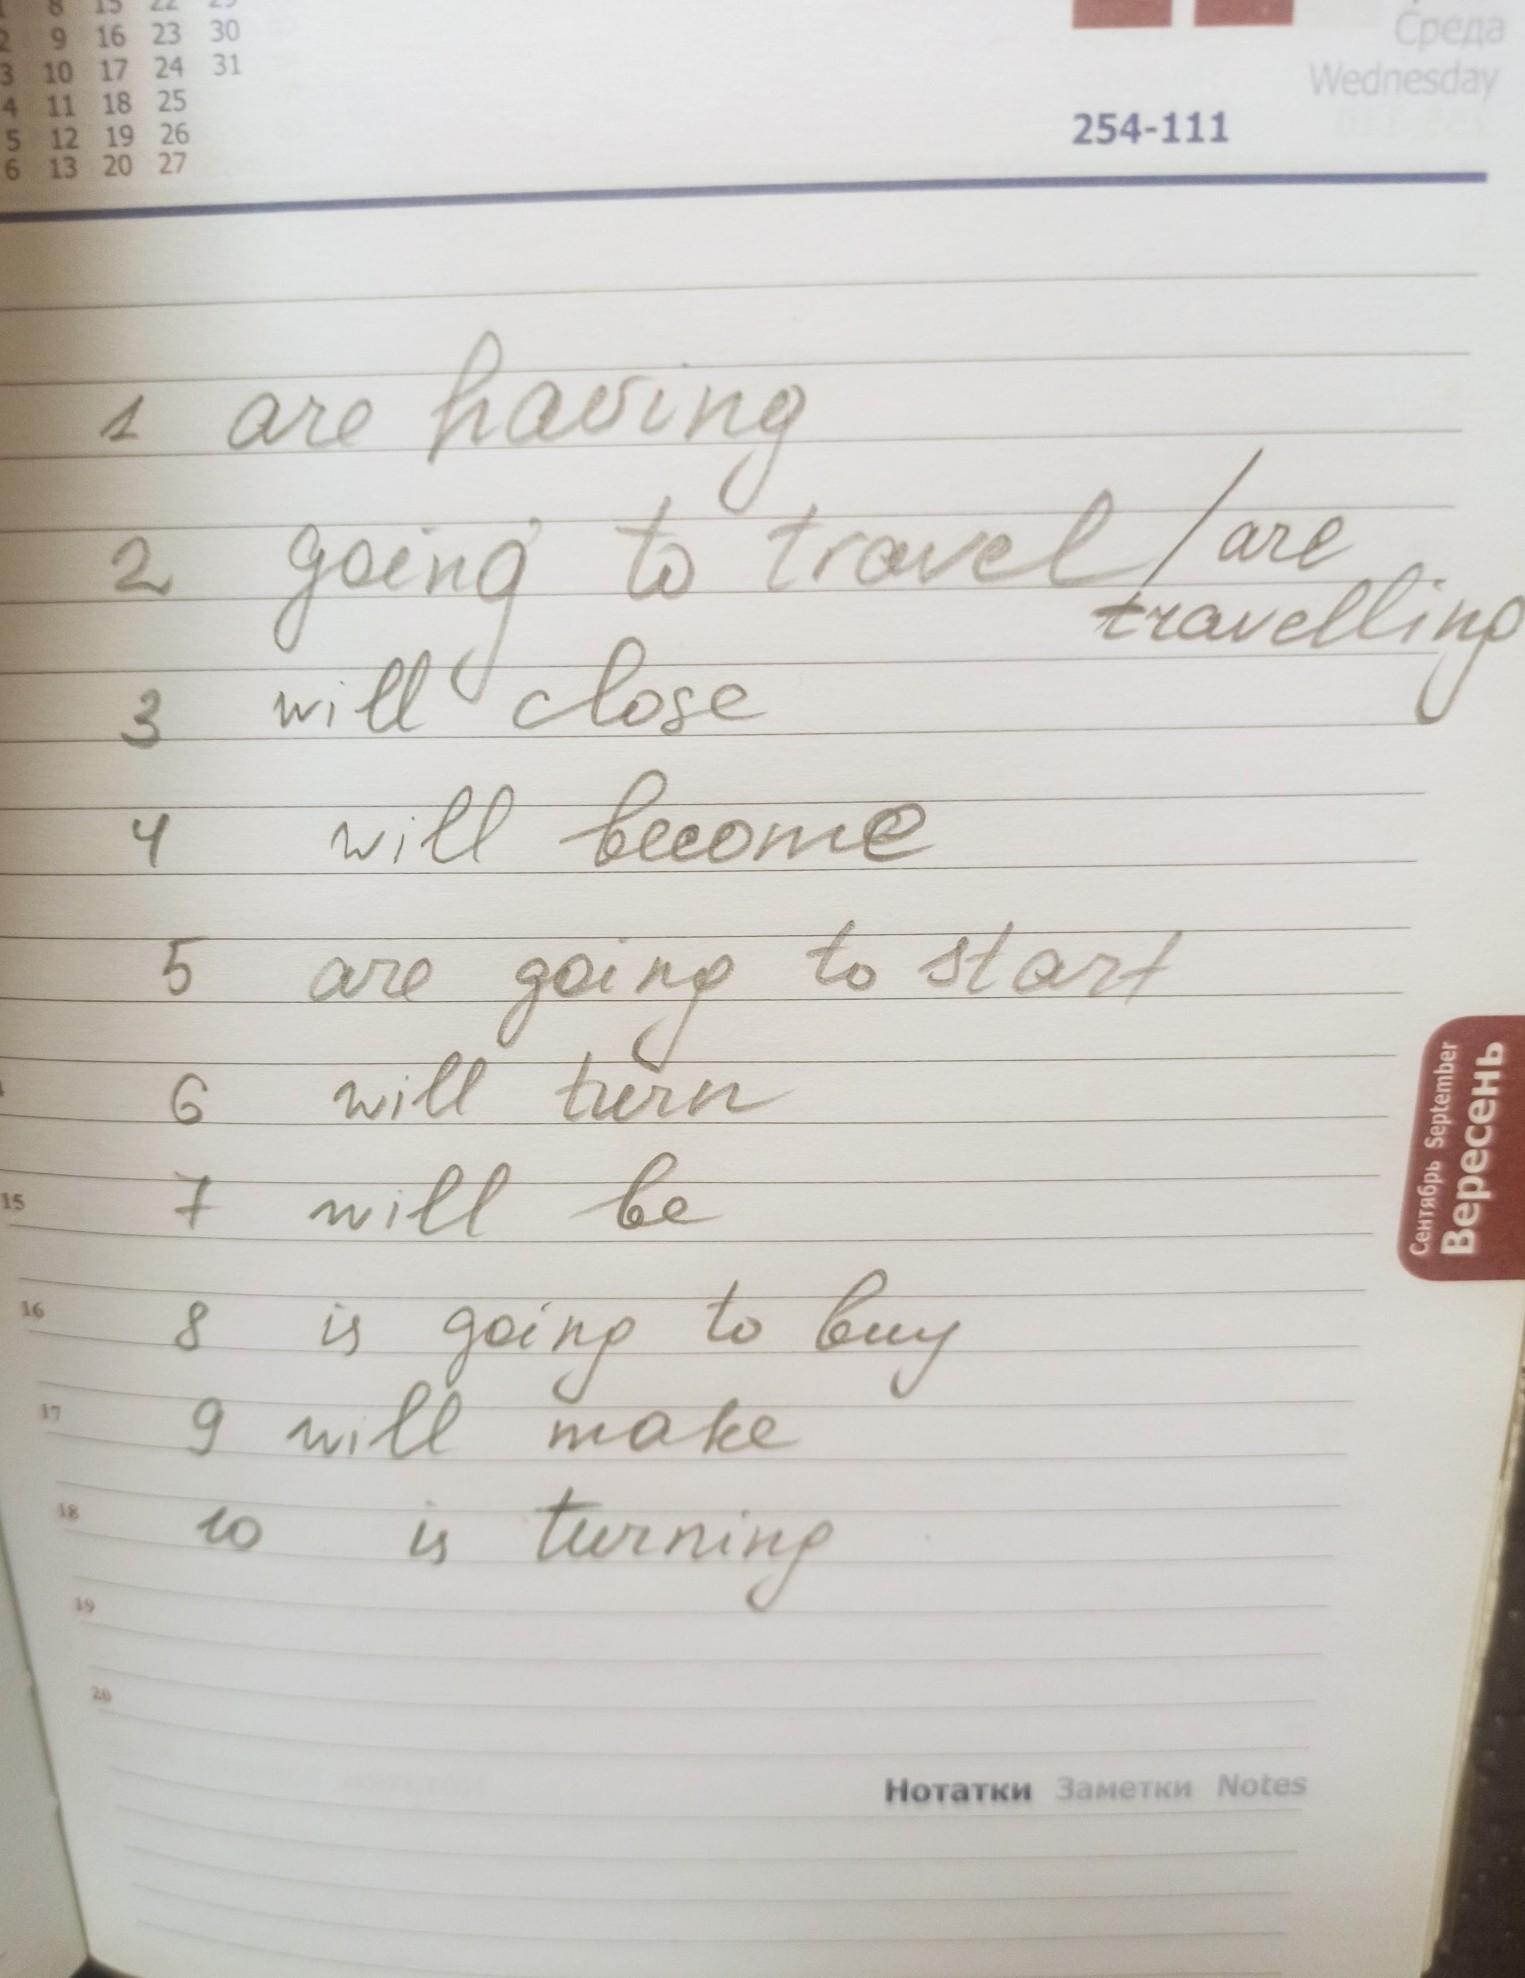 8 15 22 29
2 9 16 23 30
3 10 17 24 31
4 11 18 25
5 12 19 26
6 13 20 27
Среда
Wednesday
254-111
1 are having
2 going to travel / are
travelling
3 will close
4 will become
5 are going to start
6 will turn
7 will be
8 is going to buy
9 will make
10 is turning
15
16
17
18
19
20
Сентябрь September
Вересень
Нотатки Заметки Notes